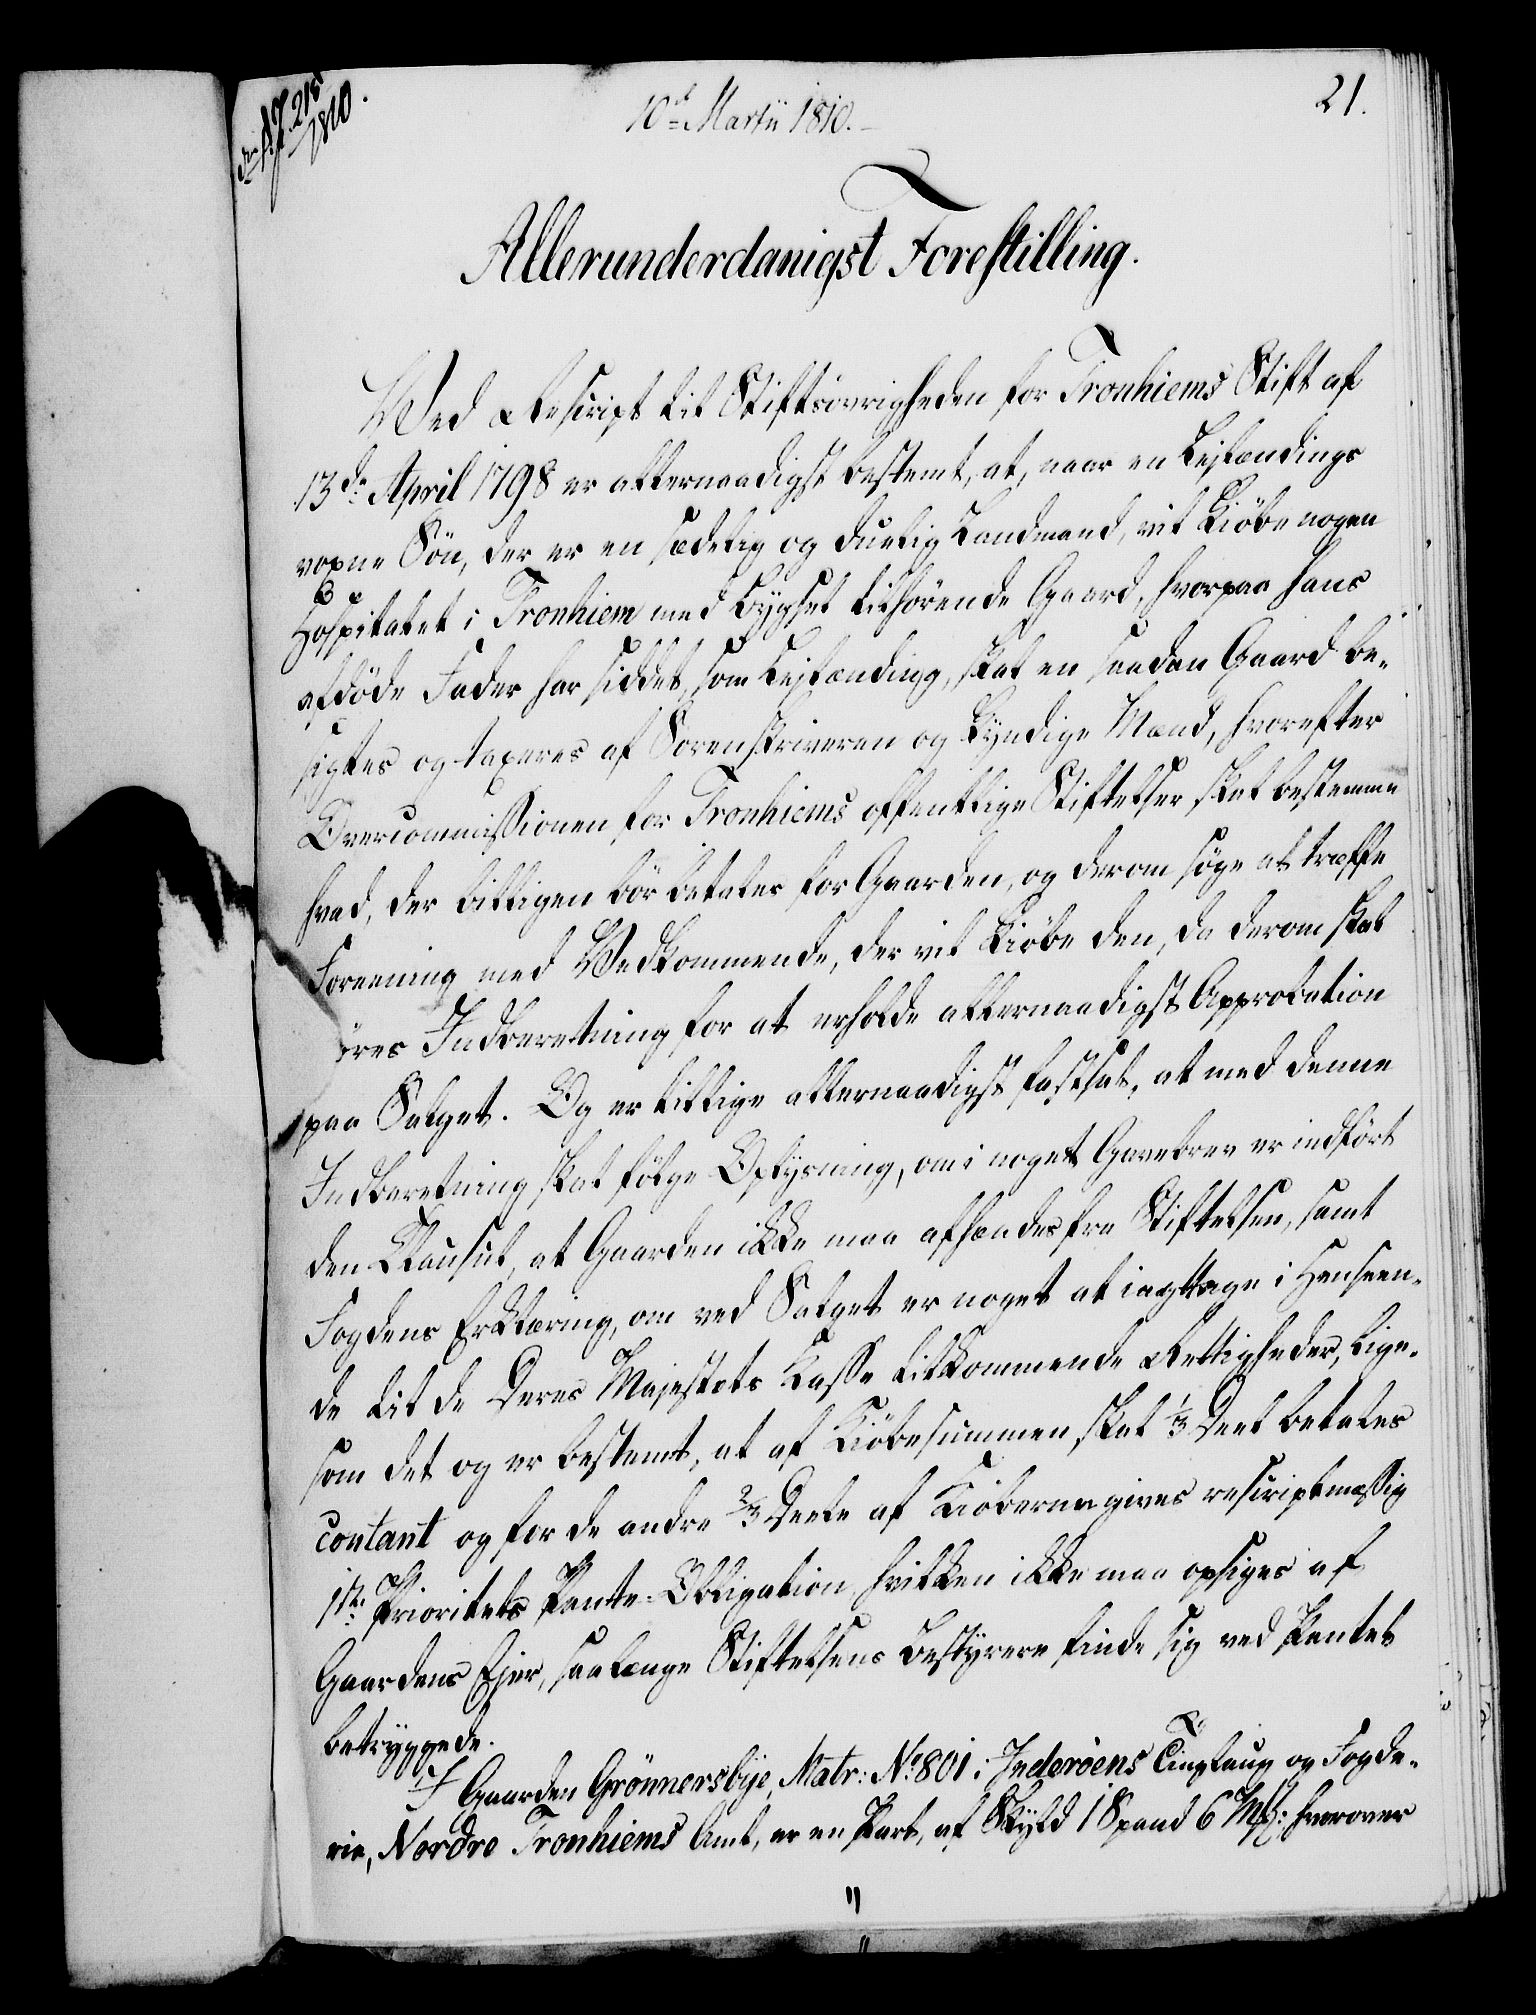 21.
10de Martii 1810.
Allerunderdanigst Forestilling.
Ved Rescript til Stiftsøvrigheden for Tronhiems Stift af
13de April 1798 er allernaadigst bestemt, at, naar en Lejlændings
voxne Søn, der er en sædelig og duelig Landmand, vil kiøbe nogen
Hospitalet i Tronhiem med Bygsel tilhørende Gaard, hvorpaa hans
afdøde Fader har siddet, som Lejlænding, skal en saadan Gaard be-
sigtes og taxeres af Sorenskriveren og kyndige Mænd, hvorefter
Overcommissionen for Tronhiems offentlige Stiftelser skal bestemme
hvad, der billigen bør betales for Gaarden, og derom søge at træffe
Foreening med Vedkommende, der vil kiøbe den, da derom skal
øres Indberetning for at erholde allernaadigst Approbation
paa Salget. Og er tillige allernaadigst fastsat, at med denne
Indberetning skal følge Oplysning, om i noget Gavebrev er indført
den Clausul, at Gaarden ikke maa afhændes fra Stiftelsen, samt
Fogdens Erklæring, om ved Salget er noget at iagttage i Henseen-
de til de Deres Majestæts Kasse tilkommende Rettigheder, lige-
som det og er bestemt, at af Kiøbesummen skal 1/3 Deel betales
contant og for de andre 2/3 Deele af Kiøberne gives rescriptmæssig
1ste Prioritets Pante-Obligation, hvilken ikke maa opsiges af
Gaardens Ejer, saalænge Stiftelsens Bestyrere finde sig ved Pantet
betryggede.
I Gaarden Grønnersbye, Matr: No 801 i Inderøens Tinglaug og Fogde-
rie, Nordre Tronhiems Amt, er en Part, af Skyld 1 Spand 6 Mkl: hvorover